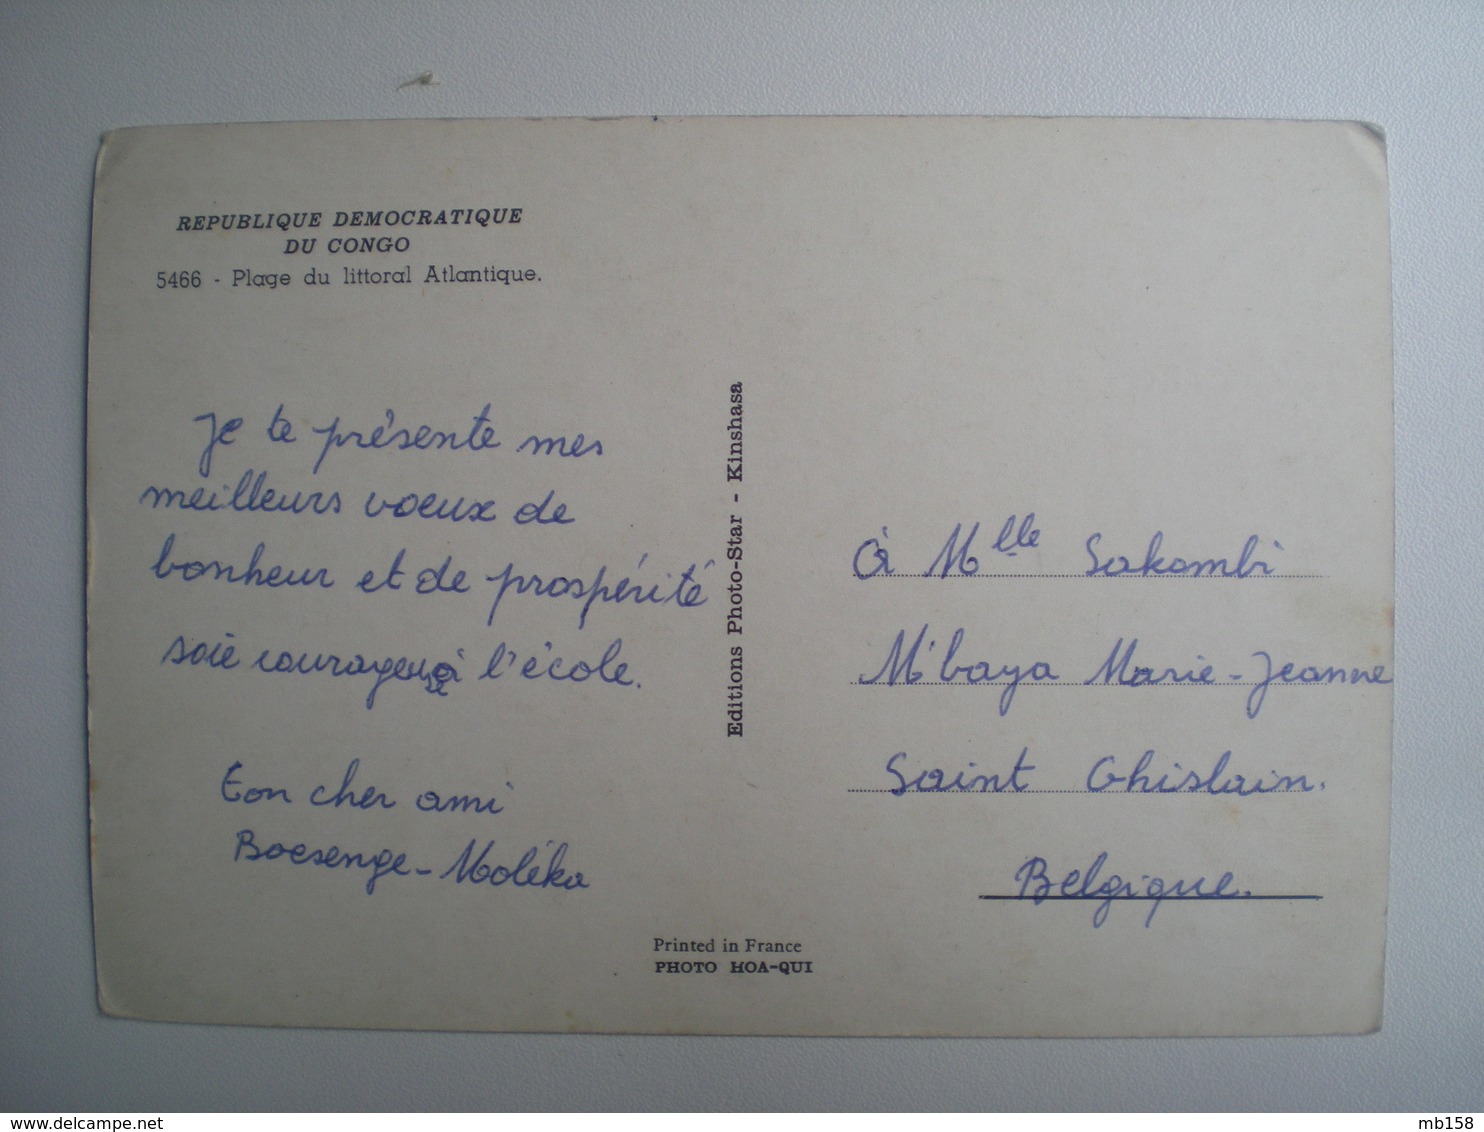 REPUBLIQUE DEMOCRATIQUE
DU CONGO
5466 - Plage du littoral Atlantique.
Je te présente mes
meilleurs voeux de
bonheur et de prospérité
soie courageuse à l'école.
Ton cher ami
Boesenge-Moléka
Editions Photo-Star - Kinshasa
À Mlle Sakombi
M'baya Marie-Jeanne
Saint Ghislain.
Belgique.
Printed in France
PHOTO HOA-QUI
delcampe.net
mb158